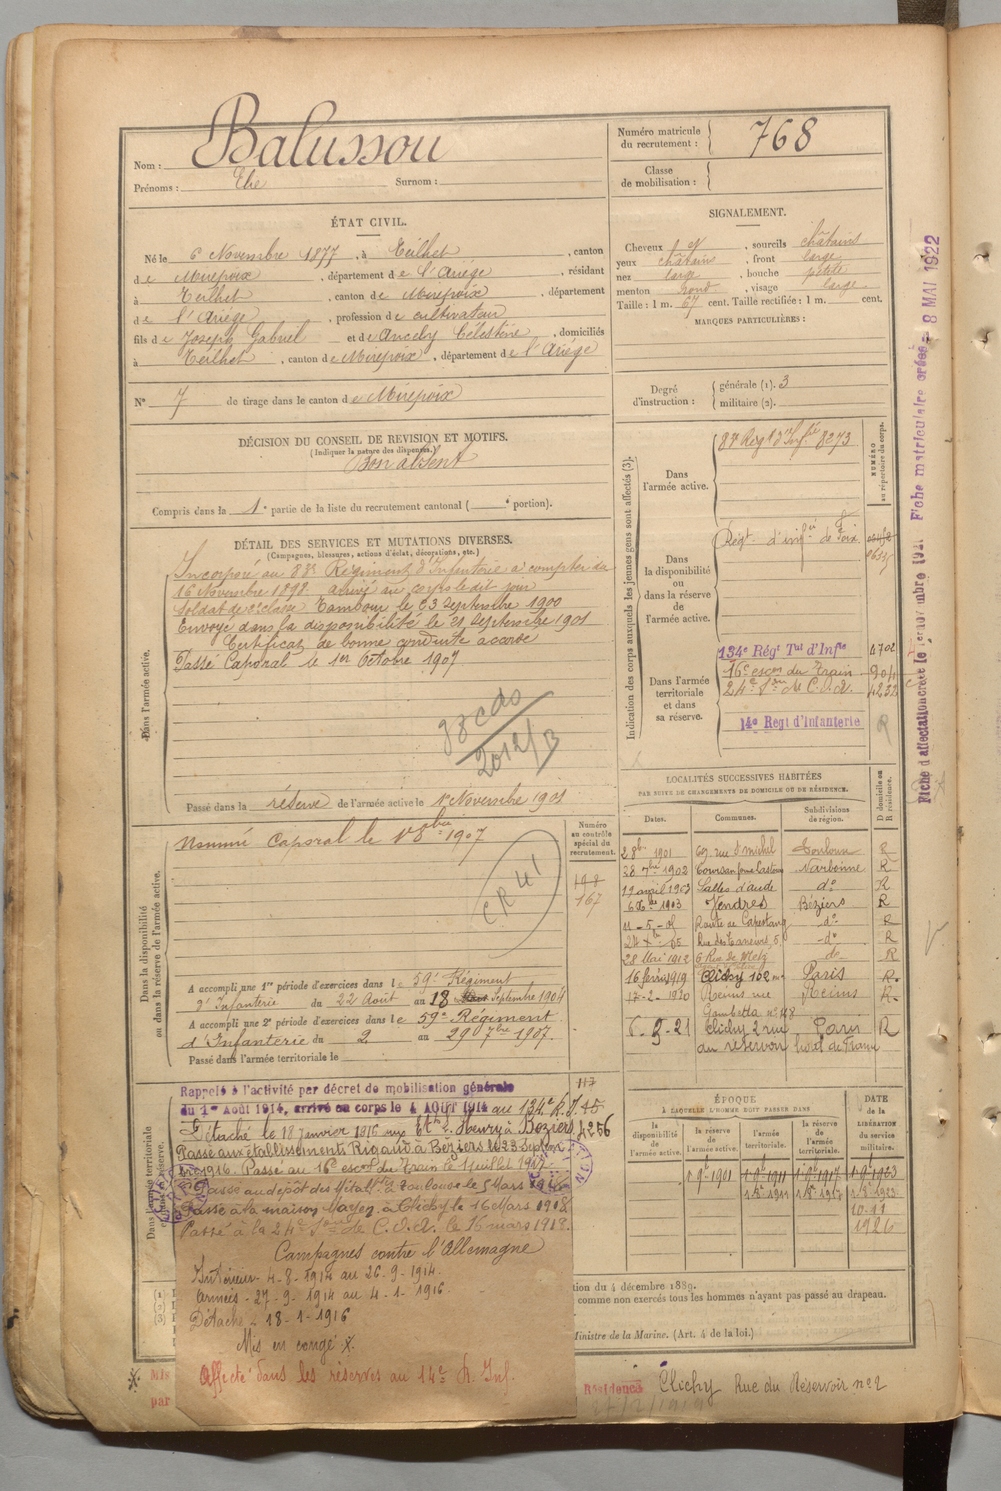 Nom : Balussou
Prénoms : Elie Surnom :
Numéro matricule du recrutement : 768
Classe de mobilisation :
ÉTAT CIVIL.
Né le 6 Novembre 1877, à Teilhet, canton
de Mirepoix, département de l'Ariège, résidant
à Teilhet, canton de Mirepoix, département
de l'Ariège, profession de cultivateur
fils de Joseph Gabriel et d Célestine, domiciliés
à Teilhet, canton de Mirepoix, département de l'Ariège
N° 7 de tirage dans le canton de Mirepoix
SIGNALEMENT.
Cheveux, sourcils châtains
yeux châtains, front large
nez large, bouche petite
menton rond, visage large
Taille : 1 m. 67 cent. Taille rectifiée : 1 m. cent.
MARQUES PARTICULIÈRES :
Degré d'instruction : générale (1). 3
militaire (2).
DÉCISION DU CONSEIL DE REVISION ET MOTIFS.
(Indiquer la nature des dispenses.)
Bon absent
Compris dans la 1e partie de la liste du recrutement cantonal ( e portion).
DÉTAIL DES SERVICES ET MUTATIONS DIVERSES.
(Campagnes, blessures, actions d'éclat, décorations, etc.)
Dans l'armée active.
Incorporé au 83e Régiment d'Infanterie à compter du
16 Novembre 1898 arrivé au corps le dit jour
Soldat de 2e classe Tambour le 23 Septembre 1900
Envoyé dans la disponibilité le 21 Septembre 1901
Certificat de bonne conduite accordé
Passé Caporal le 1er Octobre 1907
Passé dans la réserve de l'armée active le 1r Novembre 1901
Indication des corps auxquels les jeunes gens sont affectés (3).
NUMÉRO au répertoire du corps.
Dans l'armée active.
83e Régt d'Infrie 8273
Dans la disponibilité ou dans la réserve de l'armée active.
Régt d'infie de Foix
Dans l'armée territoriale et dans sa réserve.
134e Régt Tal d'Infie 4702
16e escon du Train
24e Son de C.O.A. 4232
14e Regt d'Infanterie R
LOCALITÉS SUCCESSIVES HABITÉES
PAR SUITE DE CHANGEMENTS DE DOMICILE OU DE RÉSIDENCE.
Dates. Communes. Subdivisions de région. D domicile ou R résidence.
2 8bre 1901 69, rue St michel Toulouse R
28 7bre 1902 Narbonne R
19 avril 1903 Salles d'aude do R
1903 Vendres Béziers R
11-5-05 Route de Capestang do R
do R
28 Mai 1912 6 Rue de Metz do R
16 février 1919 Clichy 102 Paris R
17-2-1920 Reims rue Gambetta n° 118 Reims R
6-9-21 Clichy 2 rue du réservoir hotel de France Paris R
Dans la disponibilité ou dans la réserve de l'armée active.
Numéro au contrôle spécial du recrutement.
Nommé Caporal le 1r 8bre 1907
CR 41
167
A accompli une 1re période d'exercices dans le 59e Régiment
d'Infanterie du 22 Août au 18 Septembre 1904
A accompli une 2e période d'exercices dans le 59e Régiment
d'Infanterie du 2 au 29 7bre 1907.
Passé dans l'armée territoriale le
Dans l'armée territoriale
Rappelé à l'activité par décret de mobilisation générale
du 1er Août 1914, arrivé au corps le 4 AOUT 1914 au 134e R.I.
Détaché le 18 Janvier 1916 aux Henry à Béziers 4256
Passé aux établissements Rigaud à Béziers le 23 Septem
bre 1916. Passé au 16e escon du Train le 1 juillet 1917
Passé au dépôt des Métallstes à Toulouse le 5 Mars 1918
Passé à la maison Mayen à Clichy le 16 Mars 1918
Passé à la 24e Son de C.O.A. le 16 mars 1918.
Campagnes contre l'Allemagne
Intérieur 4-8-1914 au 26-9-1914.
Armées - 27-9-1914 au 4-1-1916.
Détaché 18-1-1916
Mis en congé X.
Affecté dans les réserves au 14e R. Inf.
ÉPOQUE
À LAQUELLE L'HOMME DOIT PASSER DANS
la disponibilité de l'armée active. la réserve de l'armée active. l'armée territoriale. la réserve de l'armée territoriale.
DATE de la LIBÉRATION du service militaire.
1 9e 1901 1 9e 1911 1 9e 1917 1 9e 1923
10-11
1926
tion du 4 décembre 1889.
comme non exercés tous les hommes n'ayant pas passé au drapeau.
Ministre de la Marine. (Art. 4 de la loi.)
Mis
par
Résidence Clichy Rue du Réservoir n° 2
Fiche matriculaire créée 8 MAI 1922